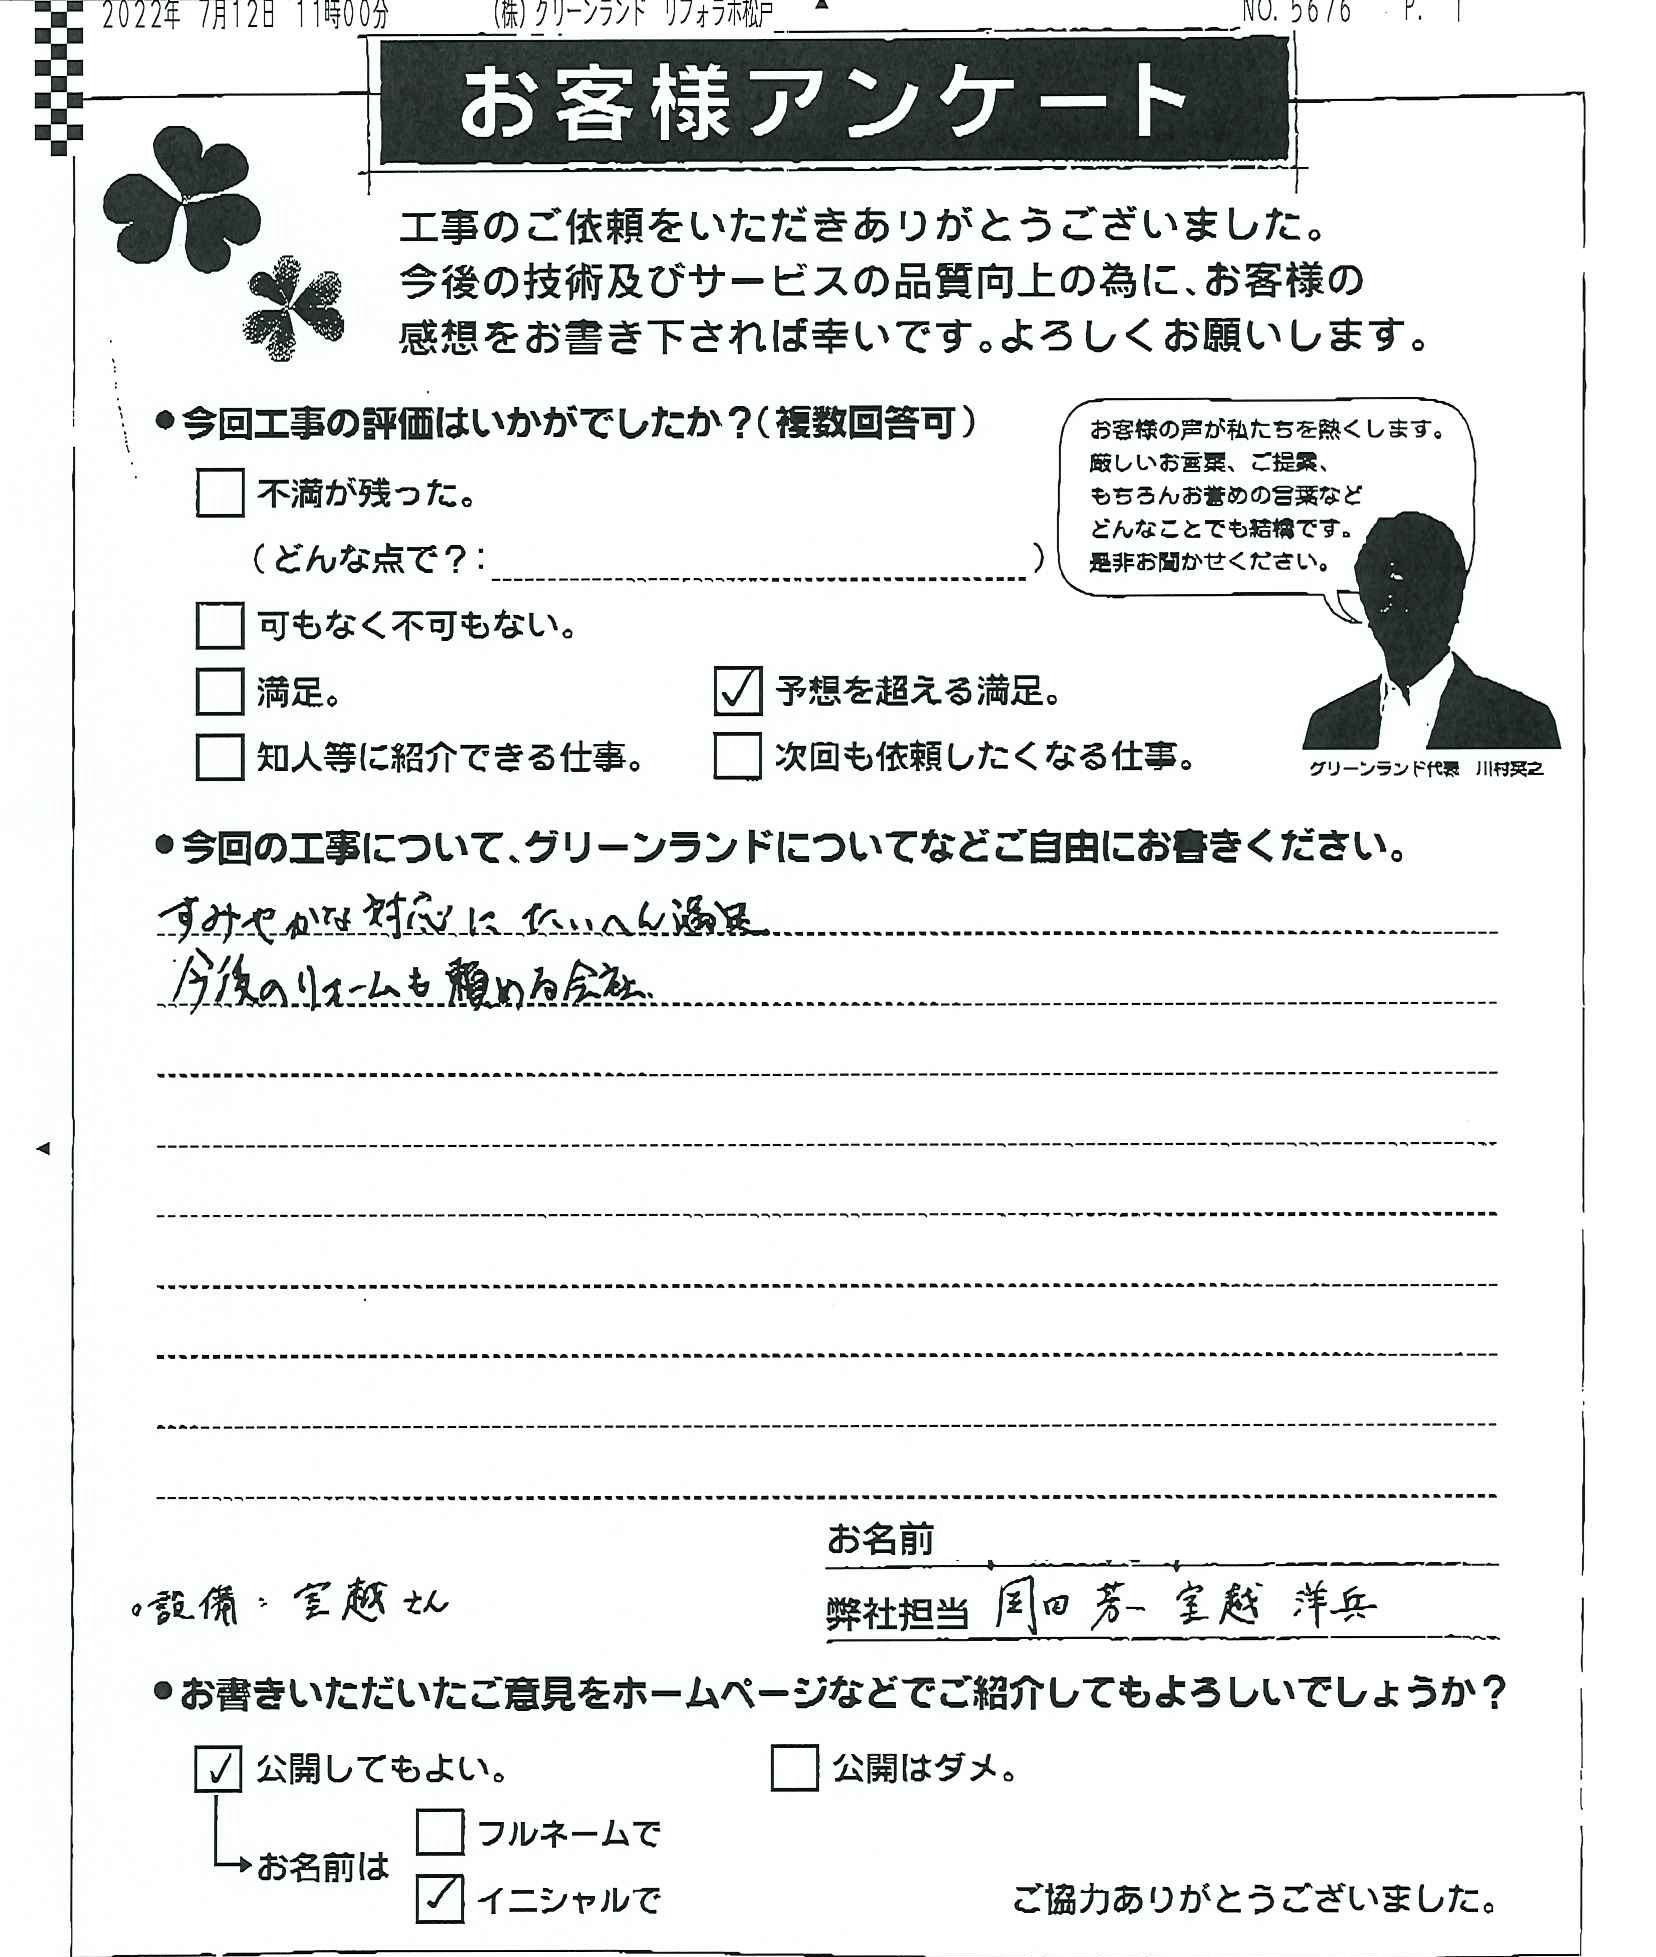 2022年 7月12日 11時00分 (株)グリーンランド リフォラボ松戸 NO. 5676 P. 1
お客様アンケート
工事のご依頼をいただきありがとうございました。
今後の技術及びサービスの品質向上の為に、お客様の
感想をお書き下されば幸いです。よろしくお願いします。
●今回工事の評価はいかがでしたか？（複数回答可）
お客様の声が私たちを熱くします。
厳しいお言葉、ご提案、
もちろんお誉めの言葉など
どんなことでも結構です。
是非お聞かせください。
グリーンランド代表 川村英之
□ 不満が残った。
（どんな点で？： ）
□ 可もなく不可もない。
□ 満足。 ☑ 予想を超える満足。
□ 知人等に紹介できる仕事。 □ 次回も依頼したくなる仕事。
●今回の工事について、グリーンランドについてなどご自由にお書きください。
すみやかな対応に たいへん満足
今後のリォームも頼める会社、
お名前
。設備：室越さん
弊社担当 岡田 芳一 室越 洋兵
●お書きいただいたご意見をホームページなどでご紹介してもよろしいでしょうか？
☑ 公開してもよい。 □ 公開はダメ。
→お名前は
□ フルネームで
☑ イニシャルで
ご協力ありがとうございました。